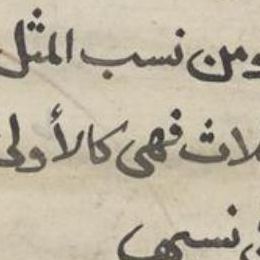 ومن نسب المثل
لاث فهى كالأولى
نسمى